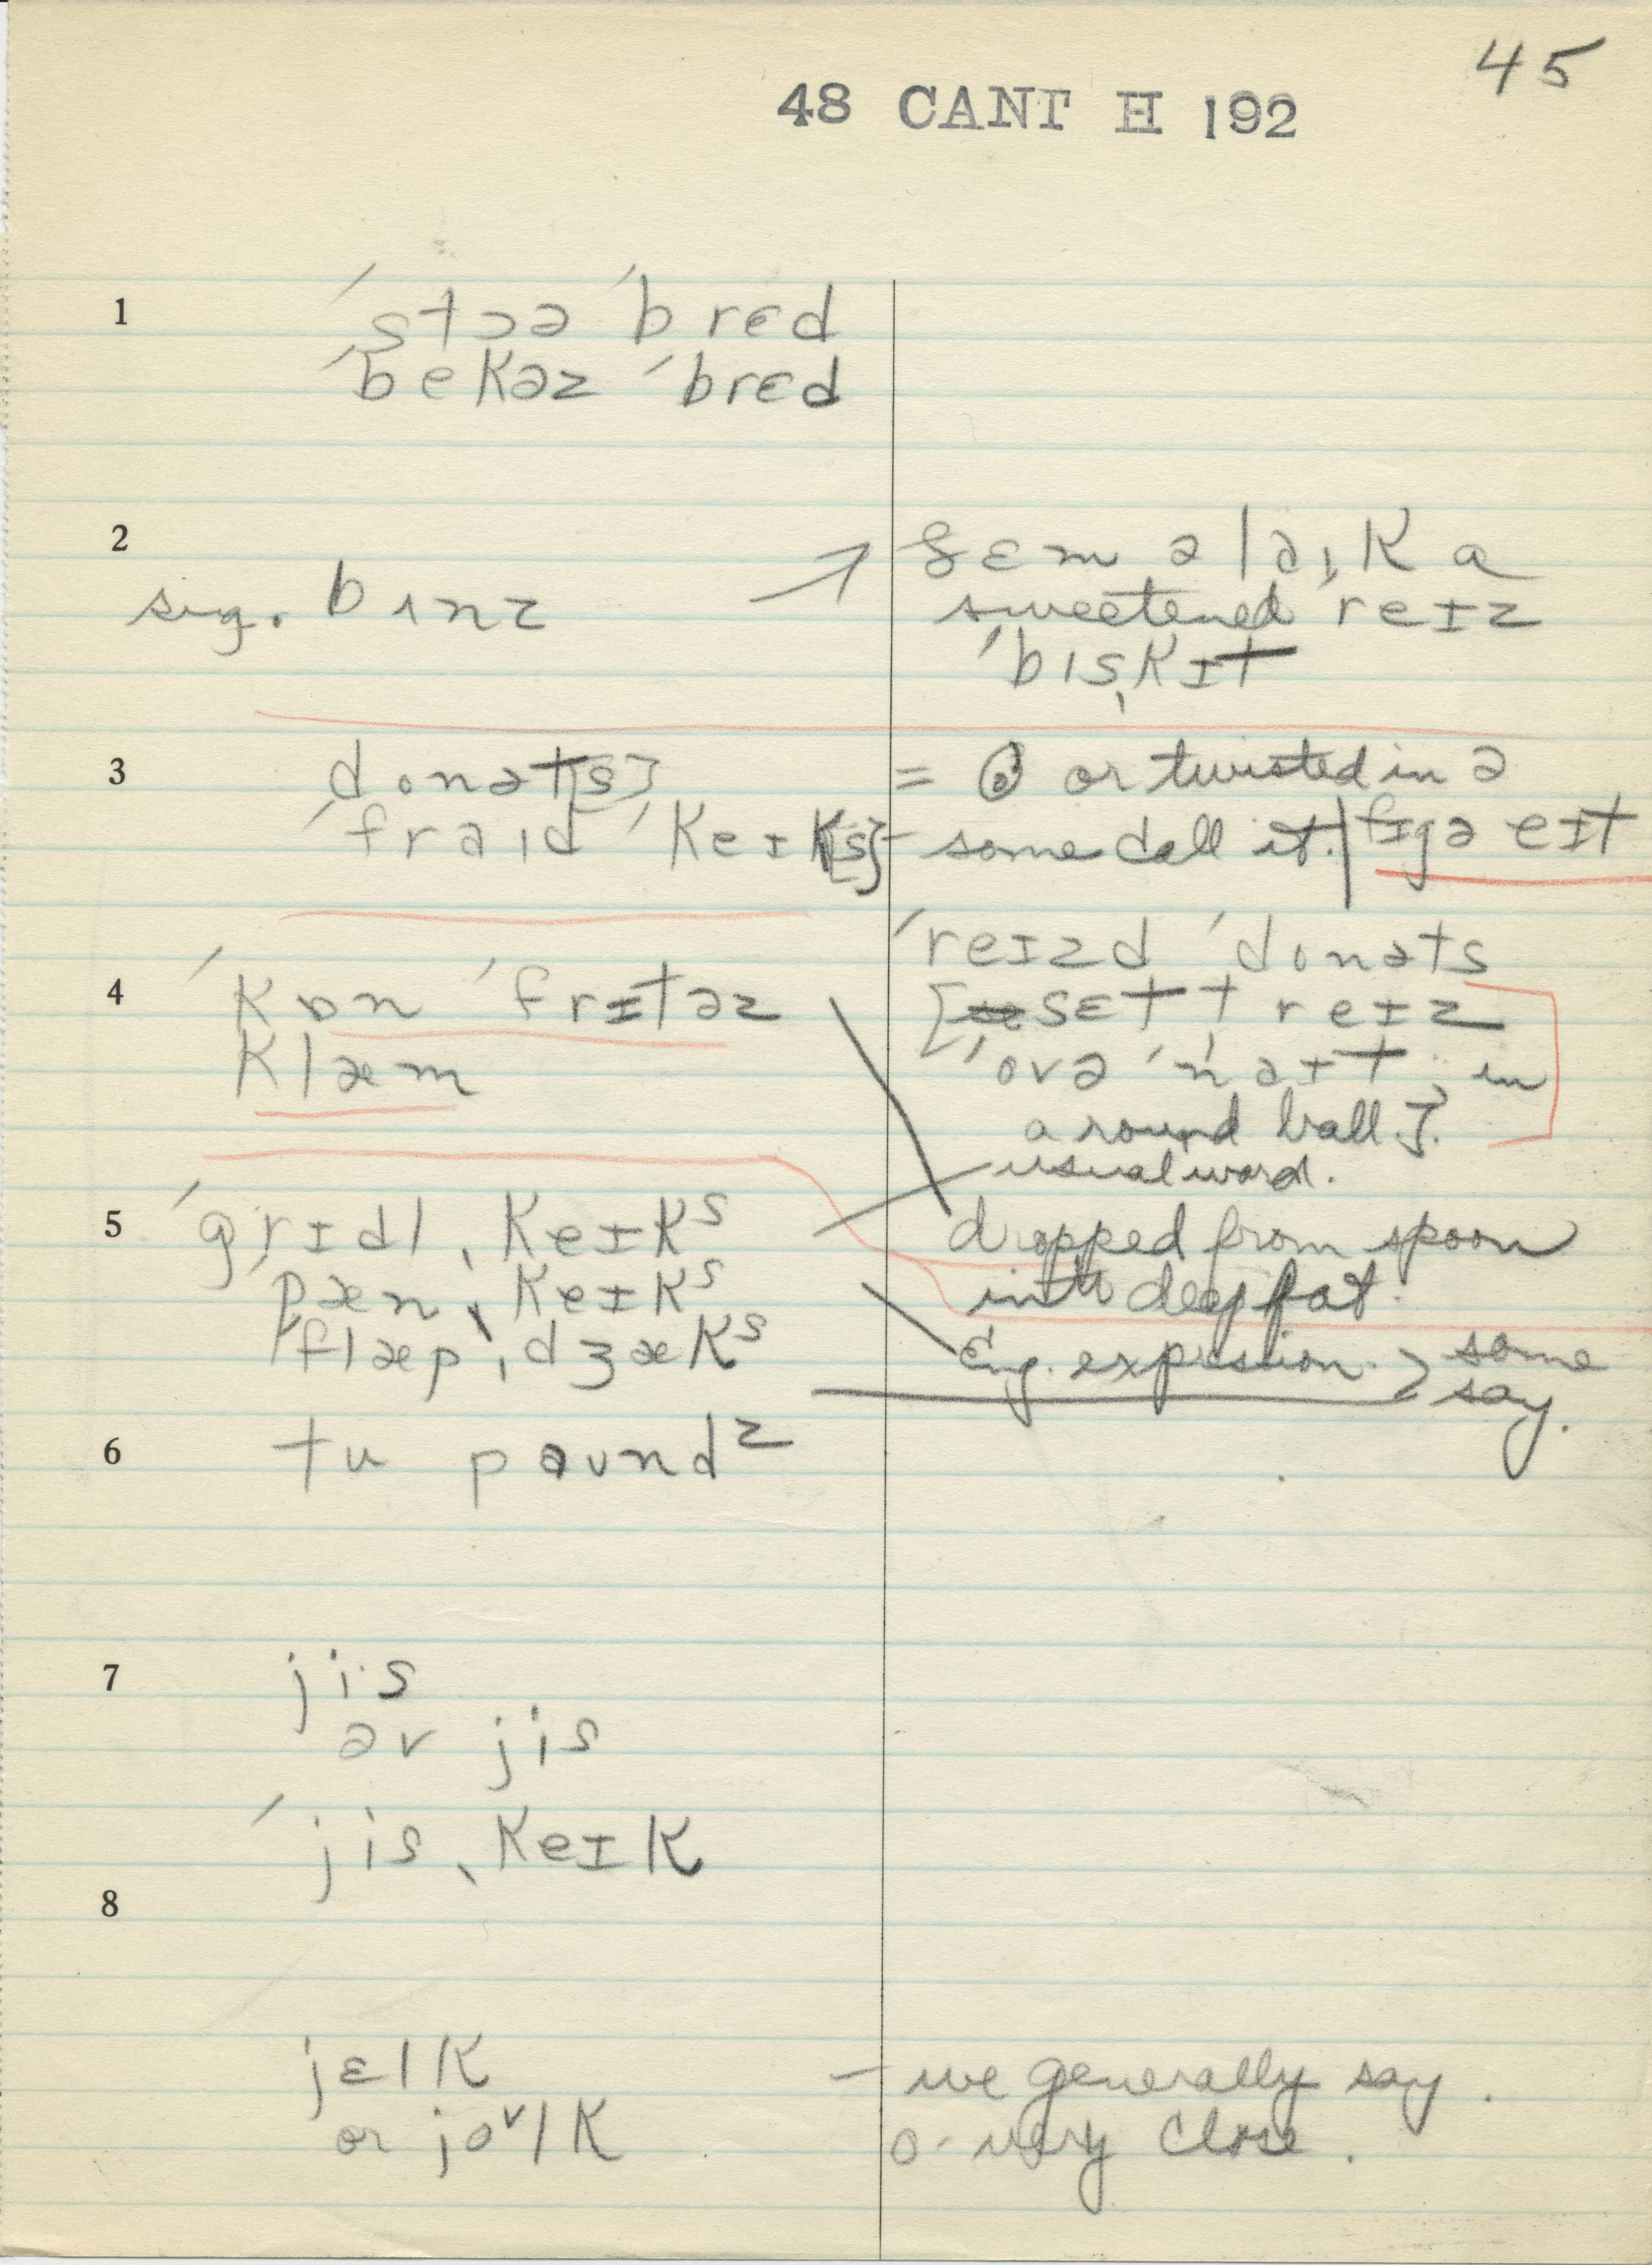 45
48 CANT H 192
1
ˈstɔə ˈbrɛd
ˈbekəz ˈbrɛd
2
sug. bʌnz
sɛm əlaˌɪk a
sweetened reɪz
ˈbɪsˌkɪt
3
donət[s]
ˈfraɪd ˈkeɪk[s]
= or twisted in ə
– some call it. fɪgə eɪt
ˈreɪzd ˈdonəts
[sɛt t reɪz
ˈovə ˈnaɪt in
a round ball].
4
ˈkɒn ˈfrɪtəz
klæm
usual word.
5
ˈgrɪdl ˌkeɪks
pænˌkeɪks
flæpˌdʒæks
dropped from spoon
into deep fat.
Eng. expression. > some
say.
6
tu paundz
7
jis
əv jis
ˈjisˌkeɪk
8
jɛlk
or jo˅lk
– we generally say.
o- very close.